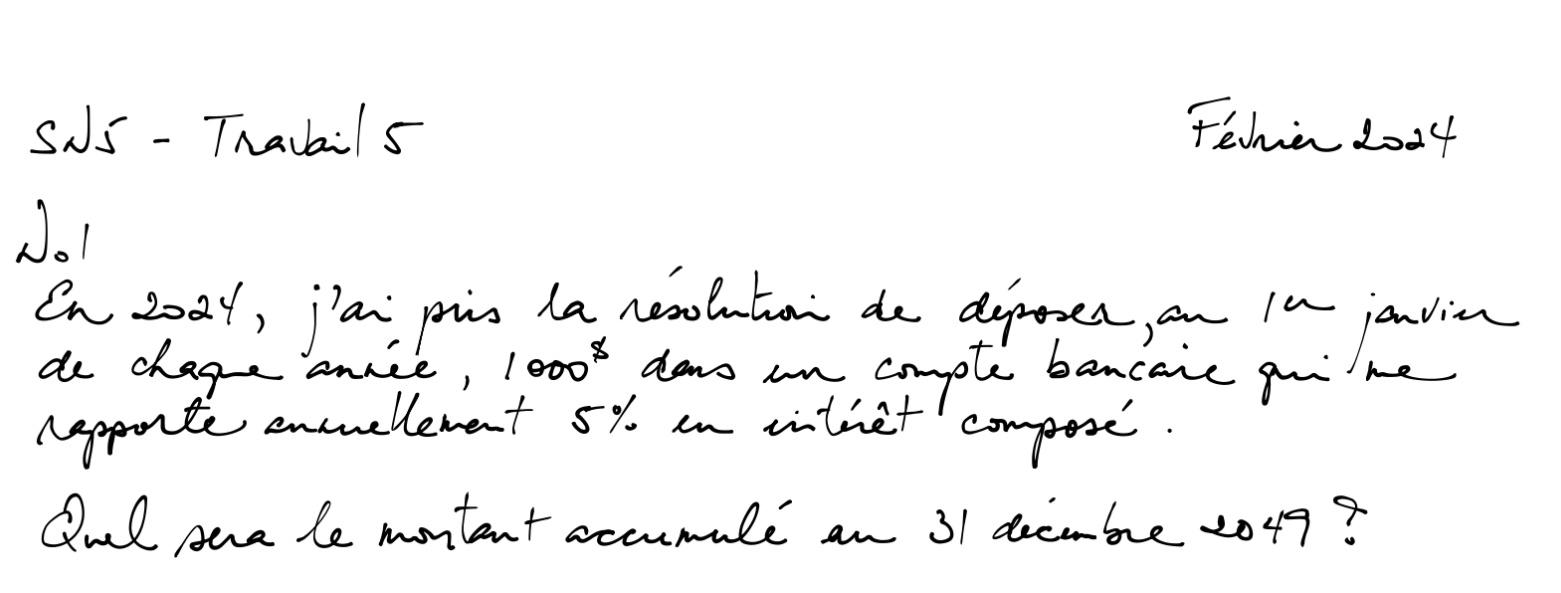 SN5 - Travail 5
Février 2024
No1
En 2024, j'ai pris la résolution de déposer, au 1er janvier
de chaque année, 1000$ dans un compte bancaire qui me
rapporte annuellement 5% en intérêt composé.
Quel sera le montant accumulé au 31 décembre 2049?